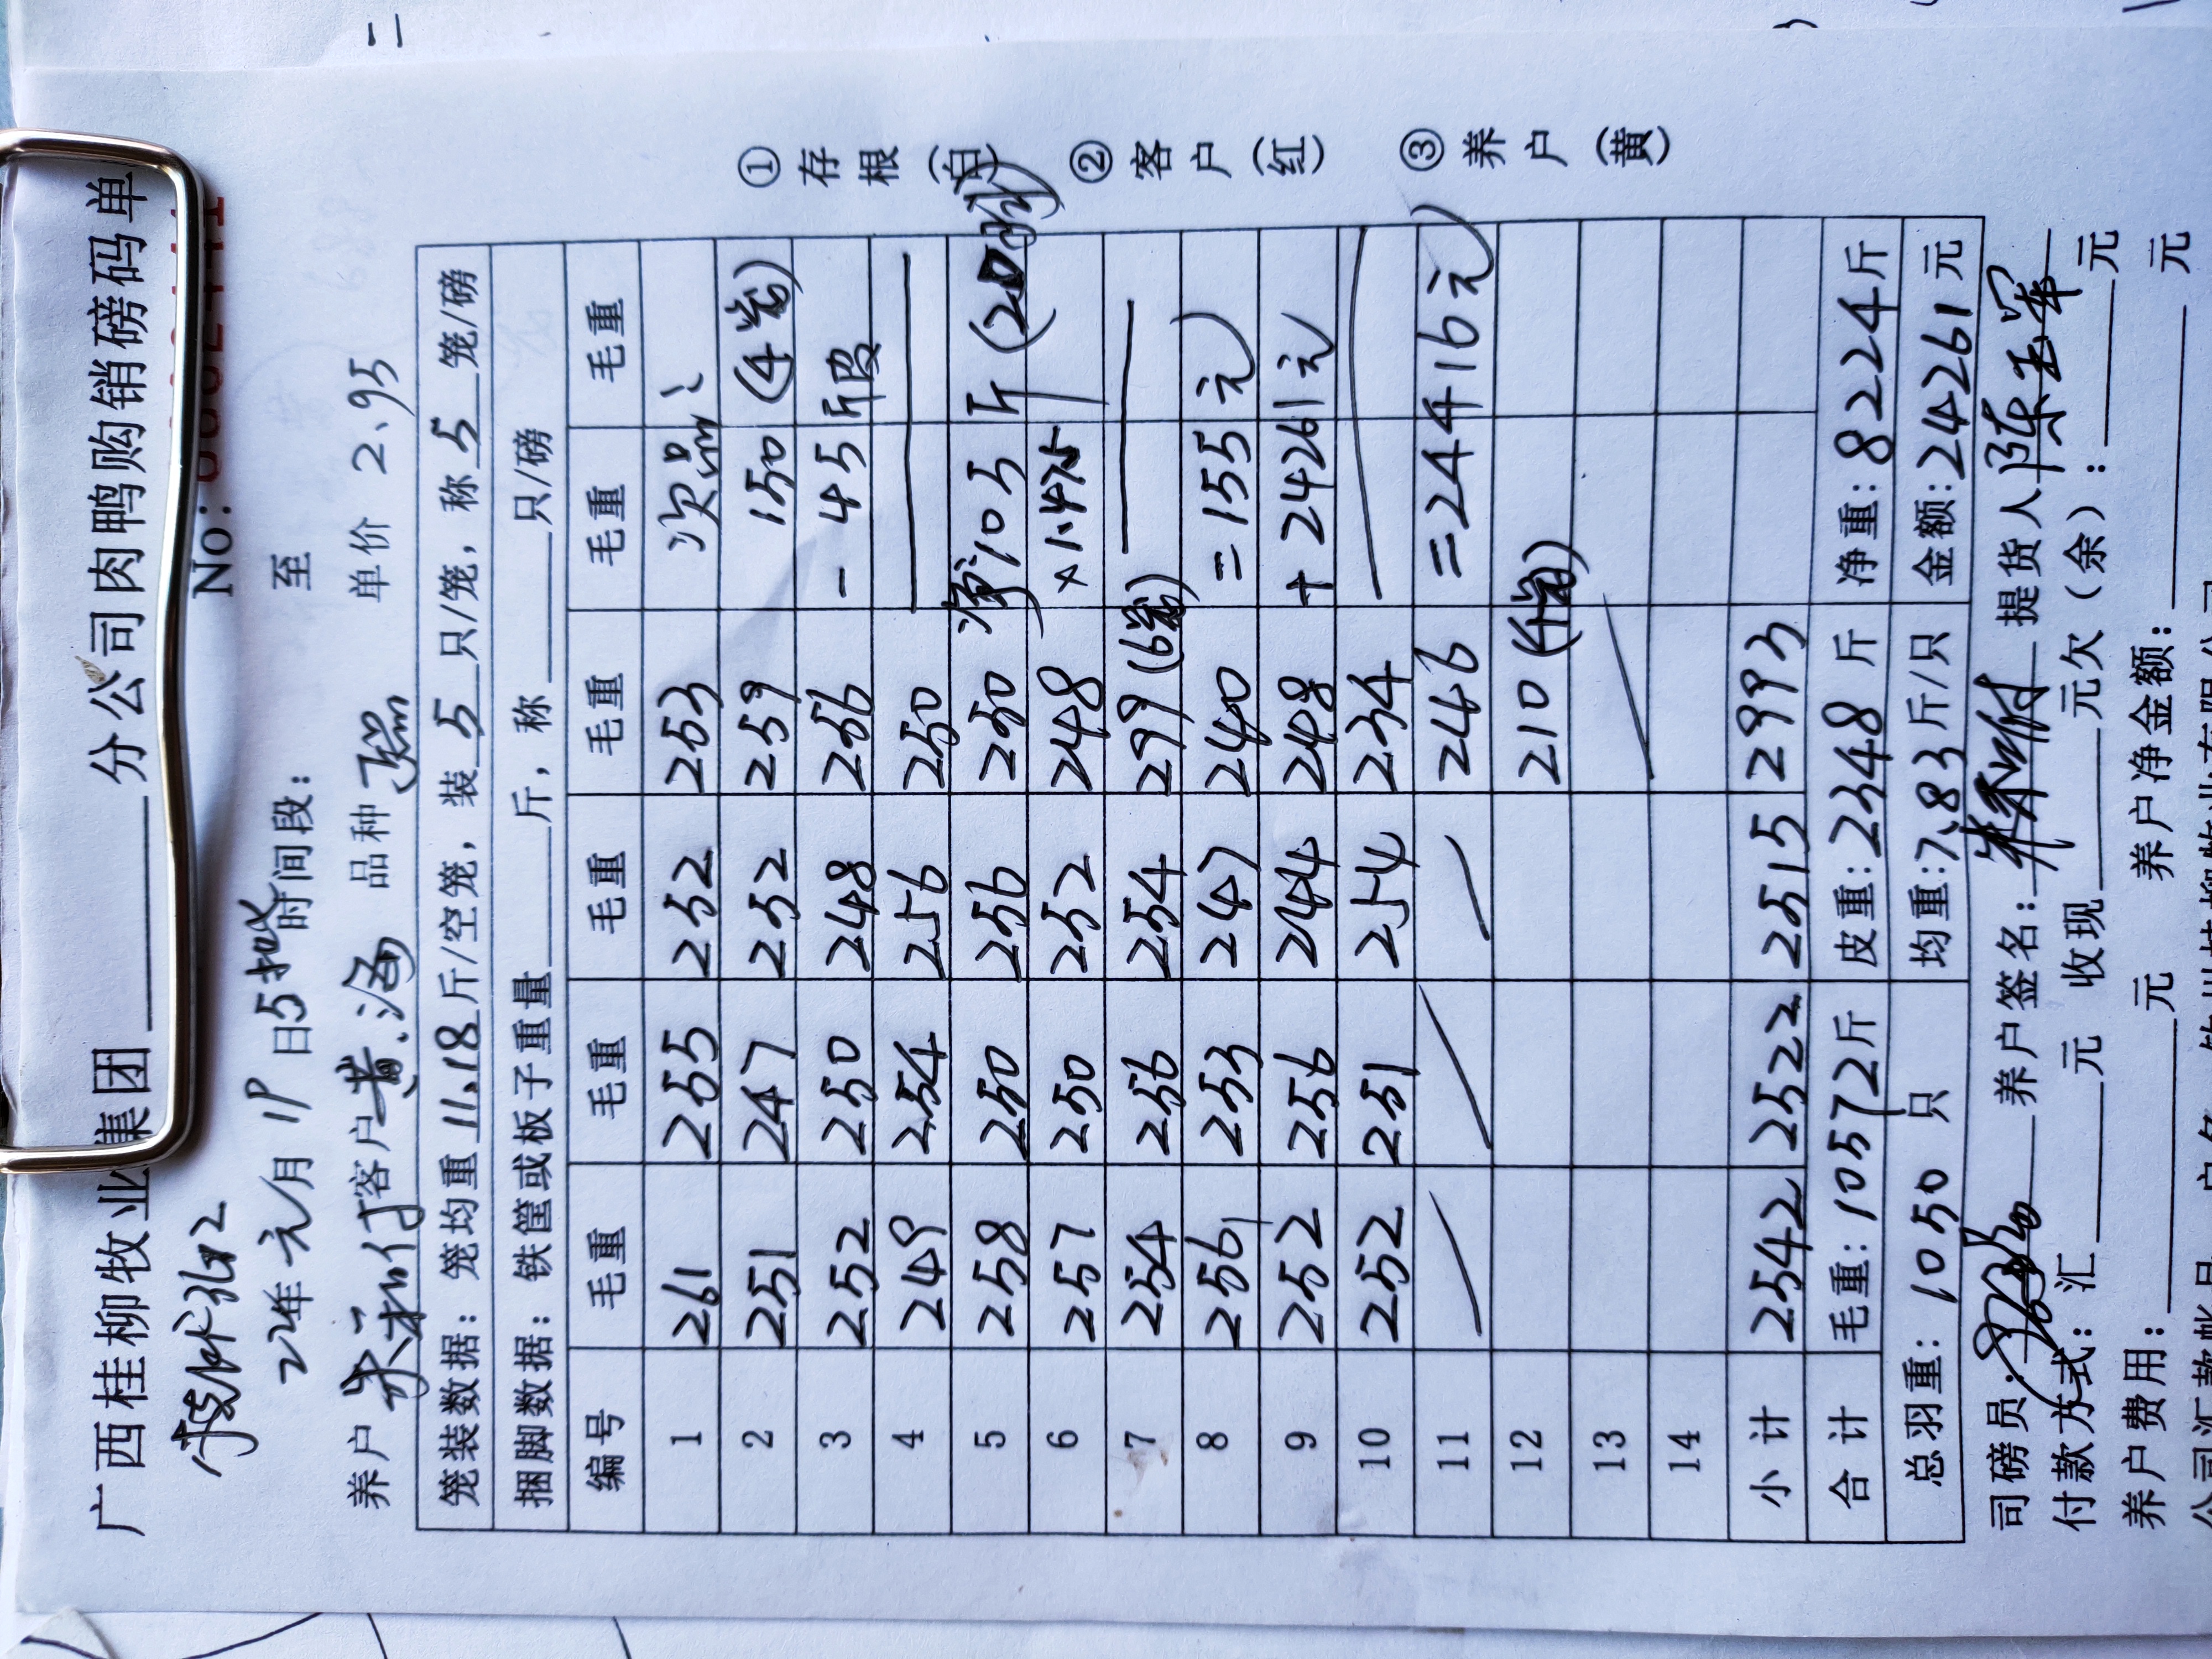 广西桂柳牧业集团 分公司肉鸭购销磅码单
No:
22年元月19日 时间段: 至
养户 客户 黄海 品种 单价 2.95
笼装数据: 笼均重 11.18 斤/空笼, 装 5 只/笼, 称 5 笼/磅
捆脚数据: 铁筐或板子重量 斤, 称 只/磅
编号 毛重 毛重 毛重 毛重 毛重 毛重
1 261 255 252 253 次品:
2 251 247 252 259 150 (4笼)
3 252 250 248 256 -45斤皮
4 249 254 256 250
5 258 250 256 250 净105斤
6 257 250 252 248 ×1.475
7 254 256 254 299 (6笼)
8 256 253 247 240 =155元
9 252 256 244 248 +24261元
10 252 251 254 234
11 246 =24416元)
12 210
13
14
小计 2542 2522 2515 2993
合计 毛重: 10572斤 皮重: 2348斤 净重: 8224斤
总羽重: 1050 只 均重: 7.83斤/只 金额: 24261元
司磅员: 养户签名: 提货人
付款方式: 汇 元 收现 元欠(余): 元
养户费用: 元 养户净金额: 元
①存根(白) ②客户(红) ③养户(黄)